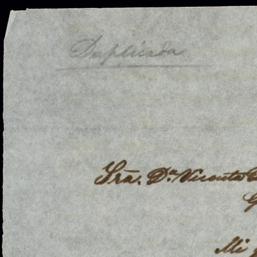 Duplicada
Sra. Da. Vicenta
Mi